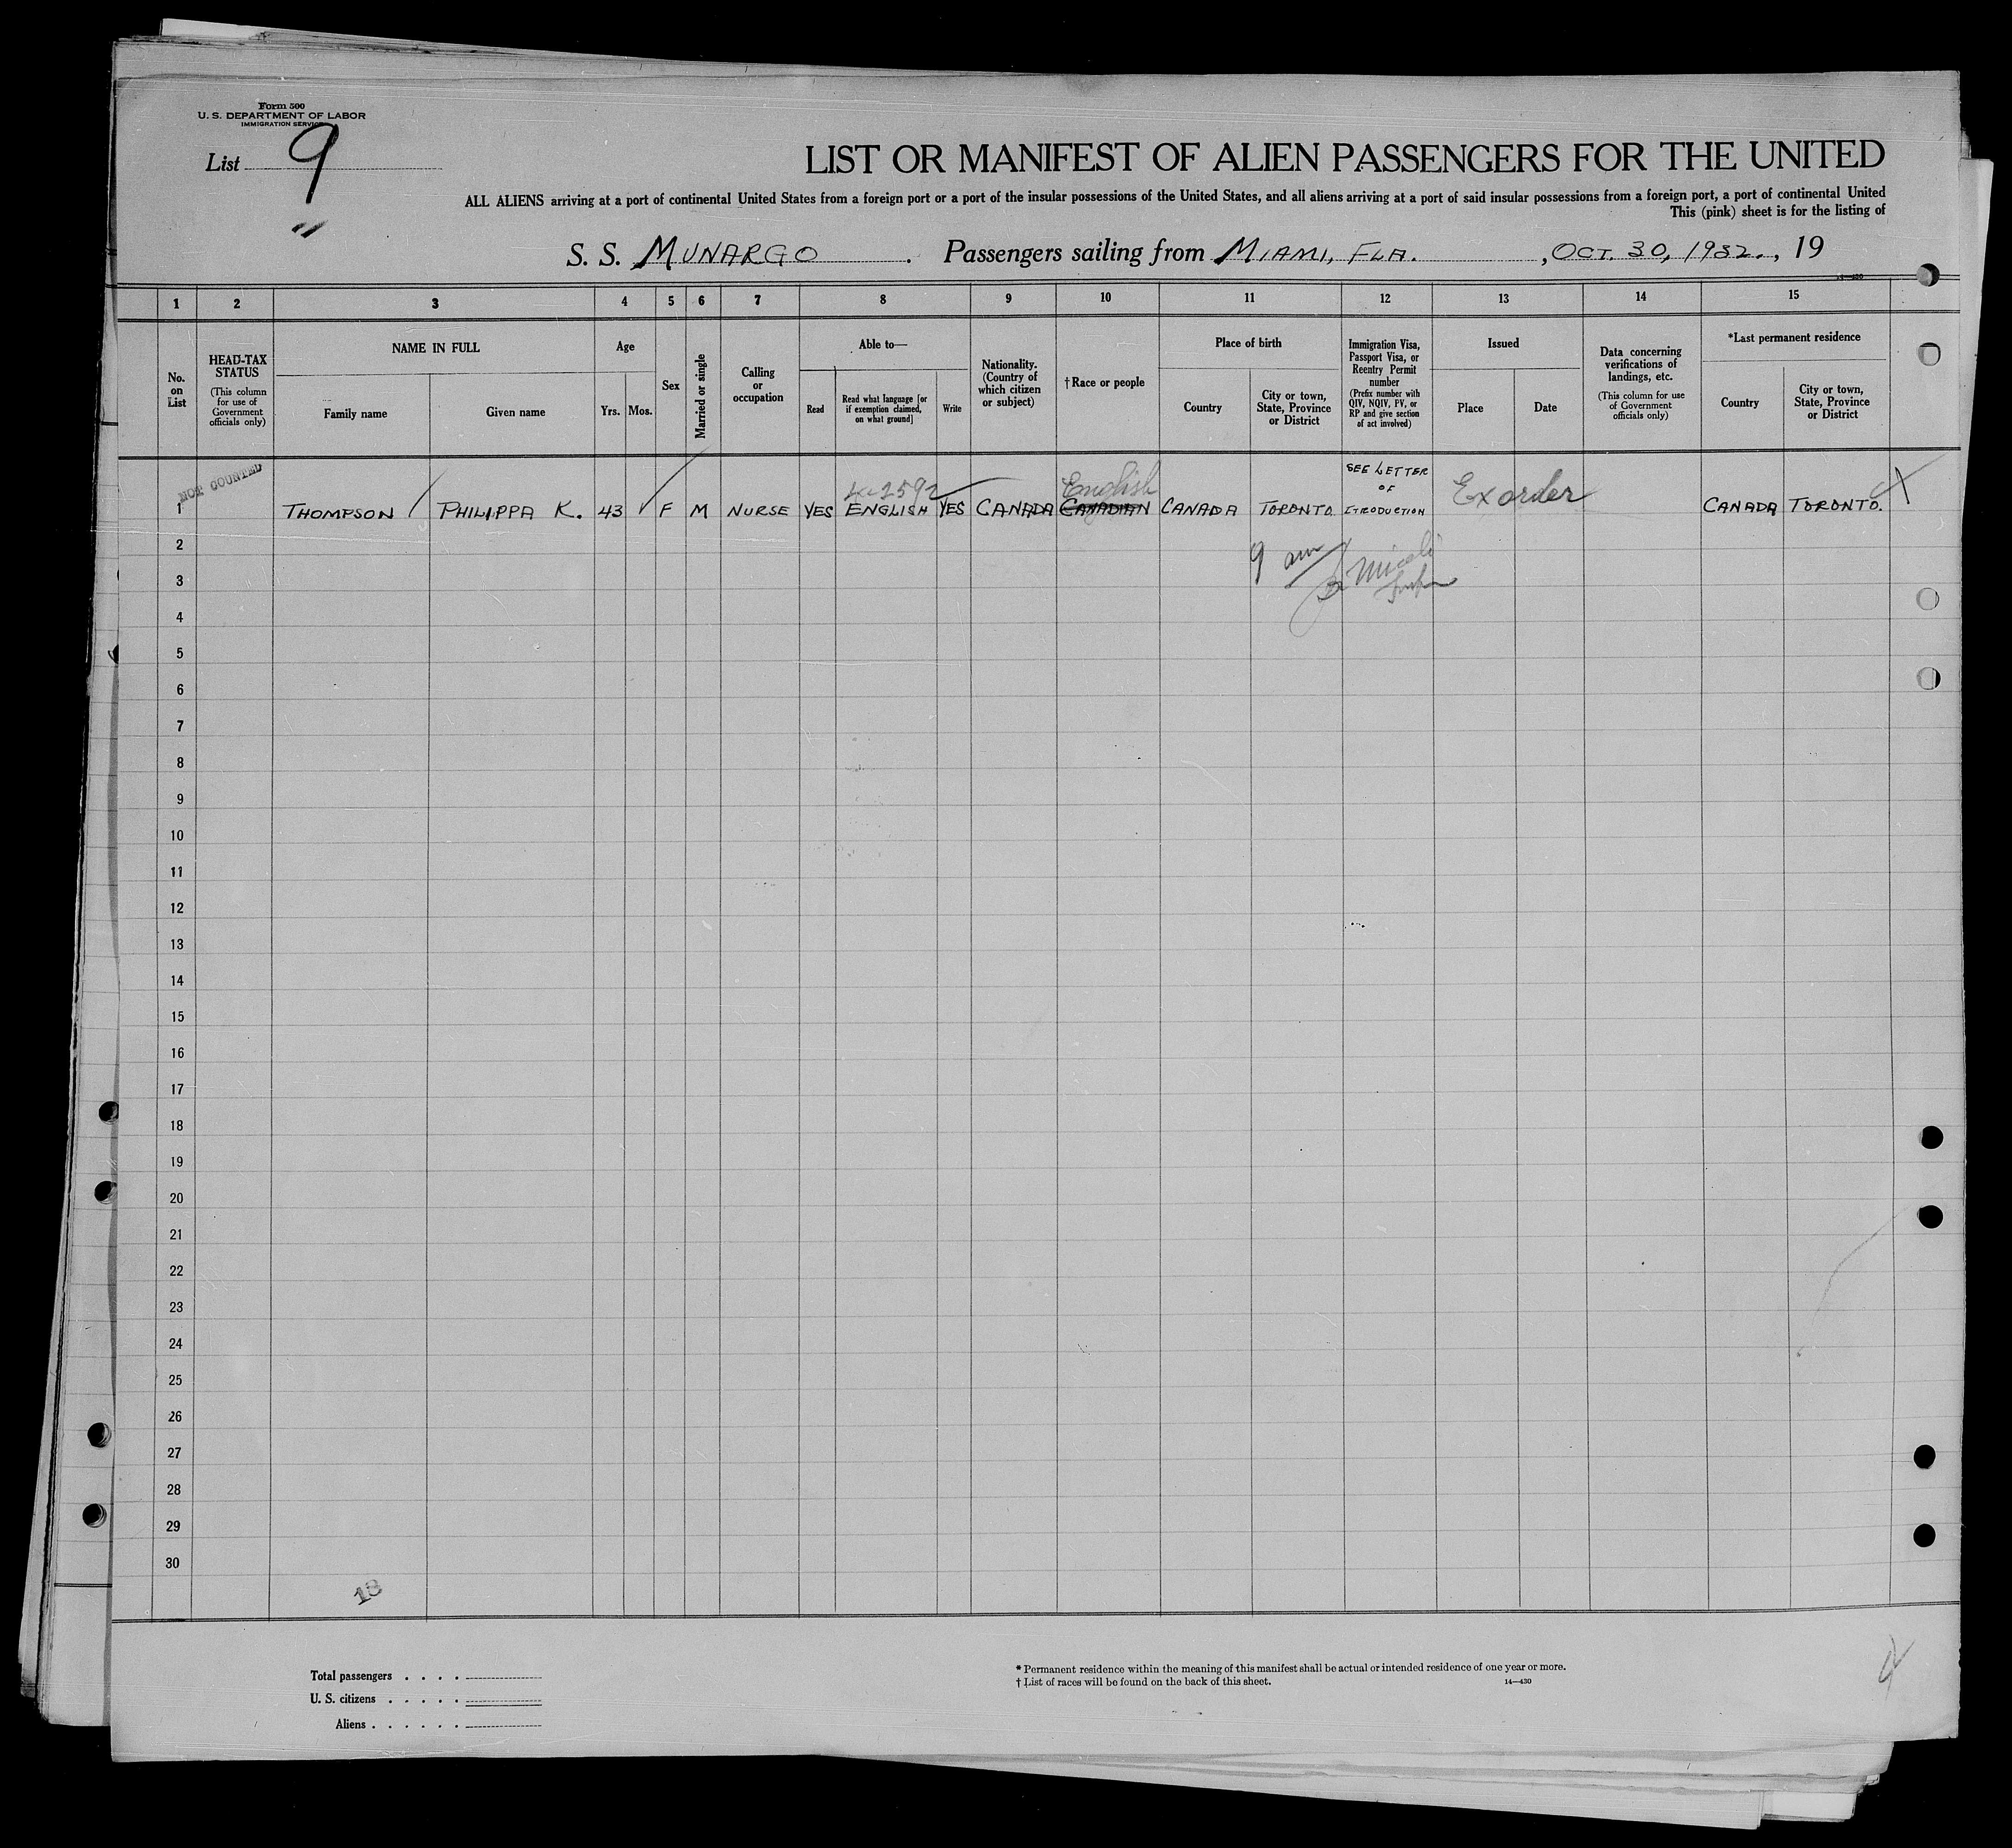 Form 500
U. S. DEPARTMENT OF LABOR
IMMIGRATION SERVICE
List 9
LIST OR MANIFEST OF ALIEN PASSENGERS FOR THE UNITED
ALL ALIENS arriving at a port of continental United States from a foreign port or a port of the insular possessions of the United States, and all aliens arriving at a port of said insular possessions from a foreign port, a port of continental United
This (pink) sheet is for the listing of
S. S. MUNARGO. Passengers sailing from MIAMI, FLA., OCT. 30, 1932., 19
14—430
1 2 3 4 5 6 7 8 9 10 11 12 13 14 15
No. on List
HEAD-TAX STATUS
(This column for use of Government officials only)
NAME IN FULL
Family name
Given name
Age
Yrs. Mos.
Sex
Married or single
Calling or occupation
Able to—
Read
Read what language [or if exemption claimed, on what ground]
Write
Nationality. (Country of which citizen or subject)
†Race or people
Place of birth
Country
City or town, State, Province or District
Immigration Visa, Passport Visa, or Reentry Permit number
(Prefix number with QIV, NQIV, PV, or RP and give section of act involved)
Issued
Place
Date
Data concerning verifications of landings, etc.
(This column for use of Government officials only)
*Last permanent residence
Country
City or town, State, Province or District
NOT COUNTED
4-2592
English
SEE LETTER
OF
1 THOMPSON PHILIPPA K. 43 F M NURSE YES ENGLISH YES CANADA CANADIAN CANADA TORONTO. ITRODUCTION Ex order CANADA TORONTO.
2
9 am
3
4
5
6
7
8
9
10
11
12
13
14
15
16
17
18
19
20
21
22
23
24
25
26
27
28
29
30
18
Total passengers . . . .
U. S. citizens . . . . .
Aliens . . . . . .
* Permanent residence within the meaning of this manifest shall be actual or intended residence of one year or more.
† List of races will be found on the back of this sheet.
14—430